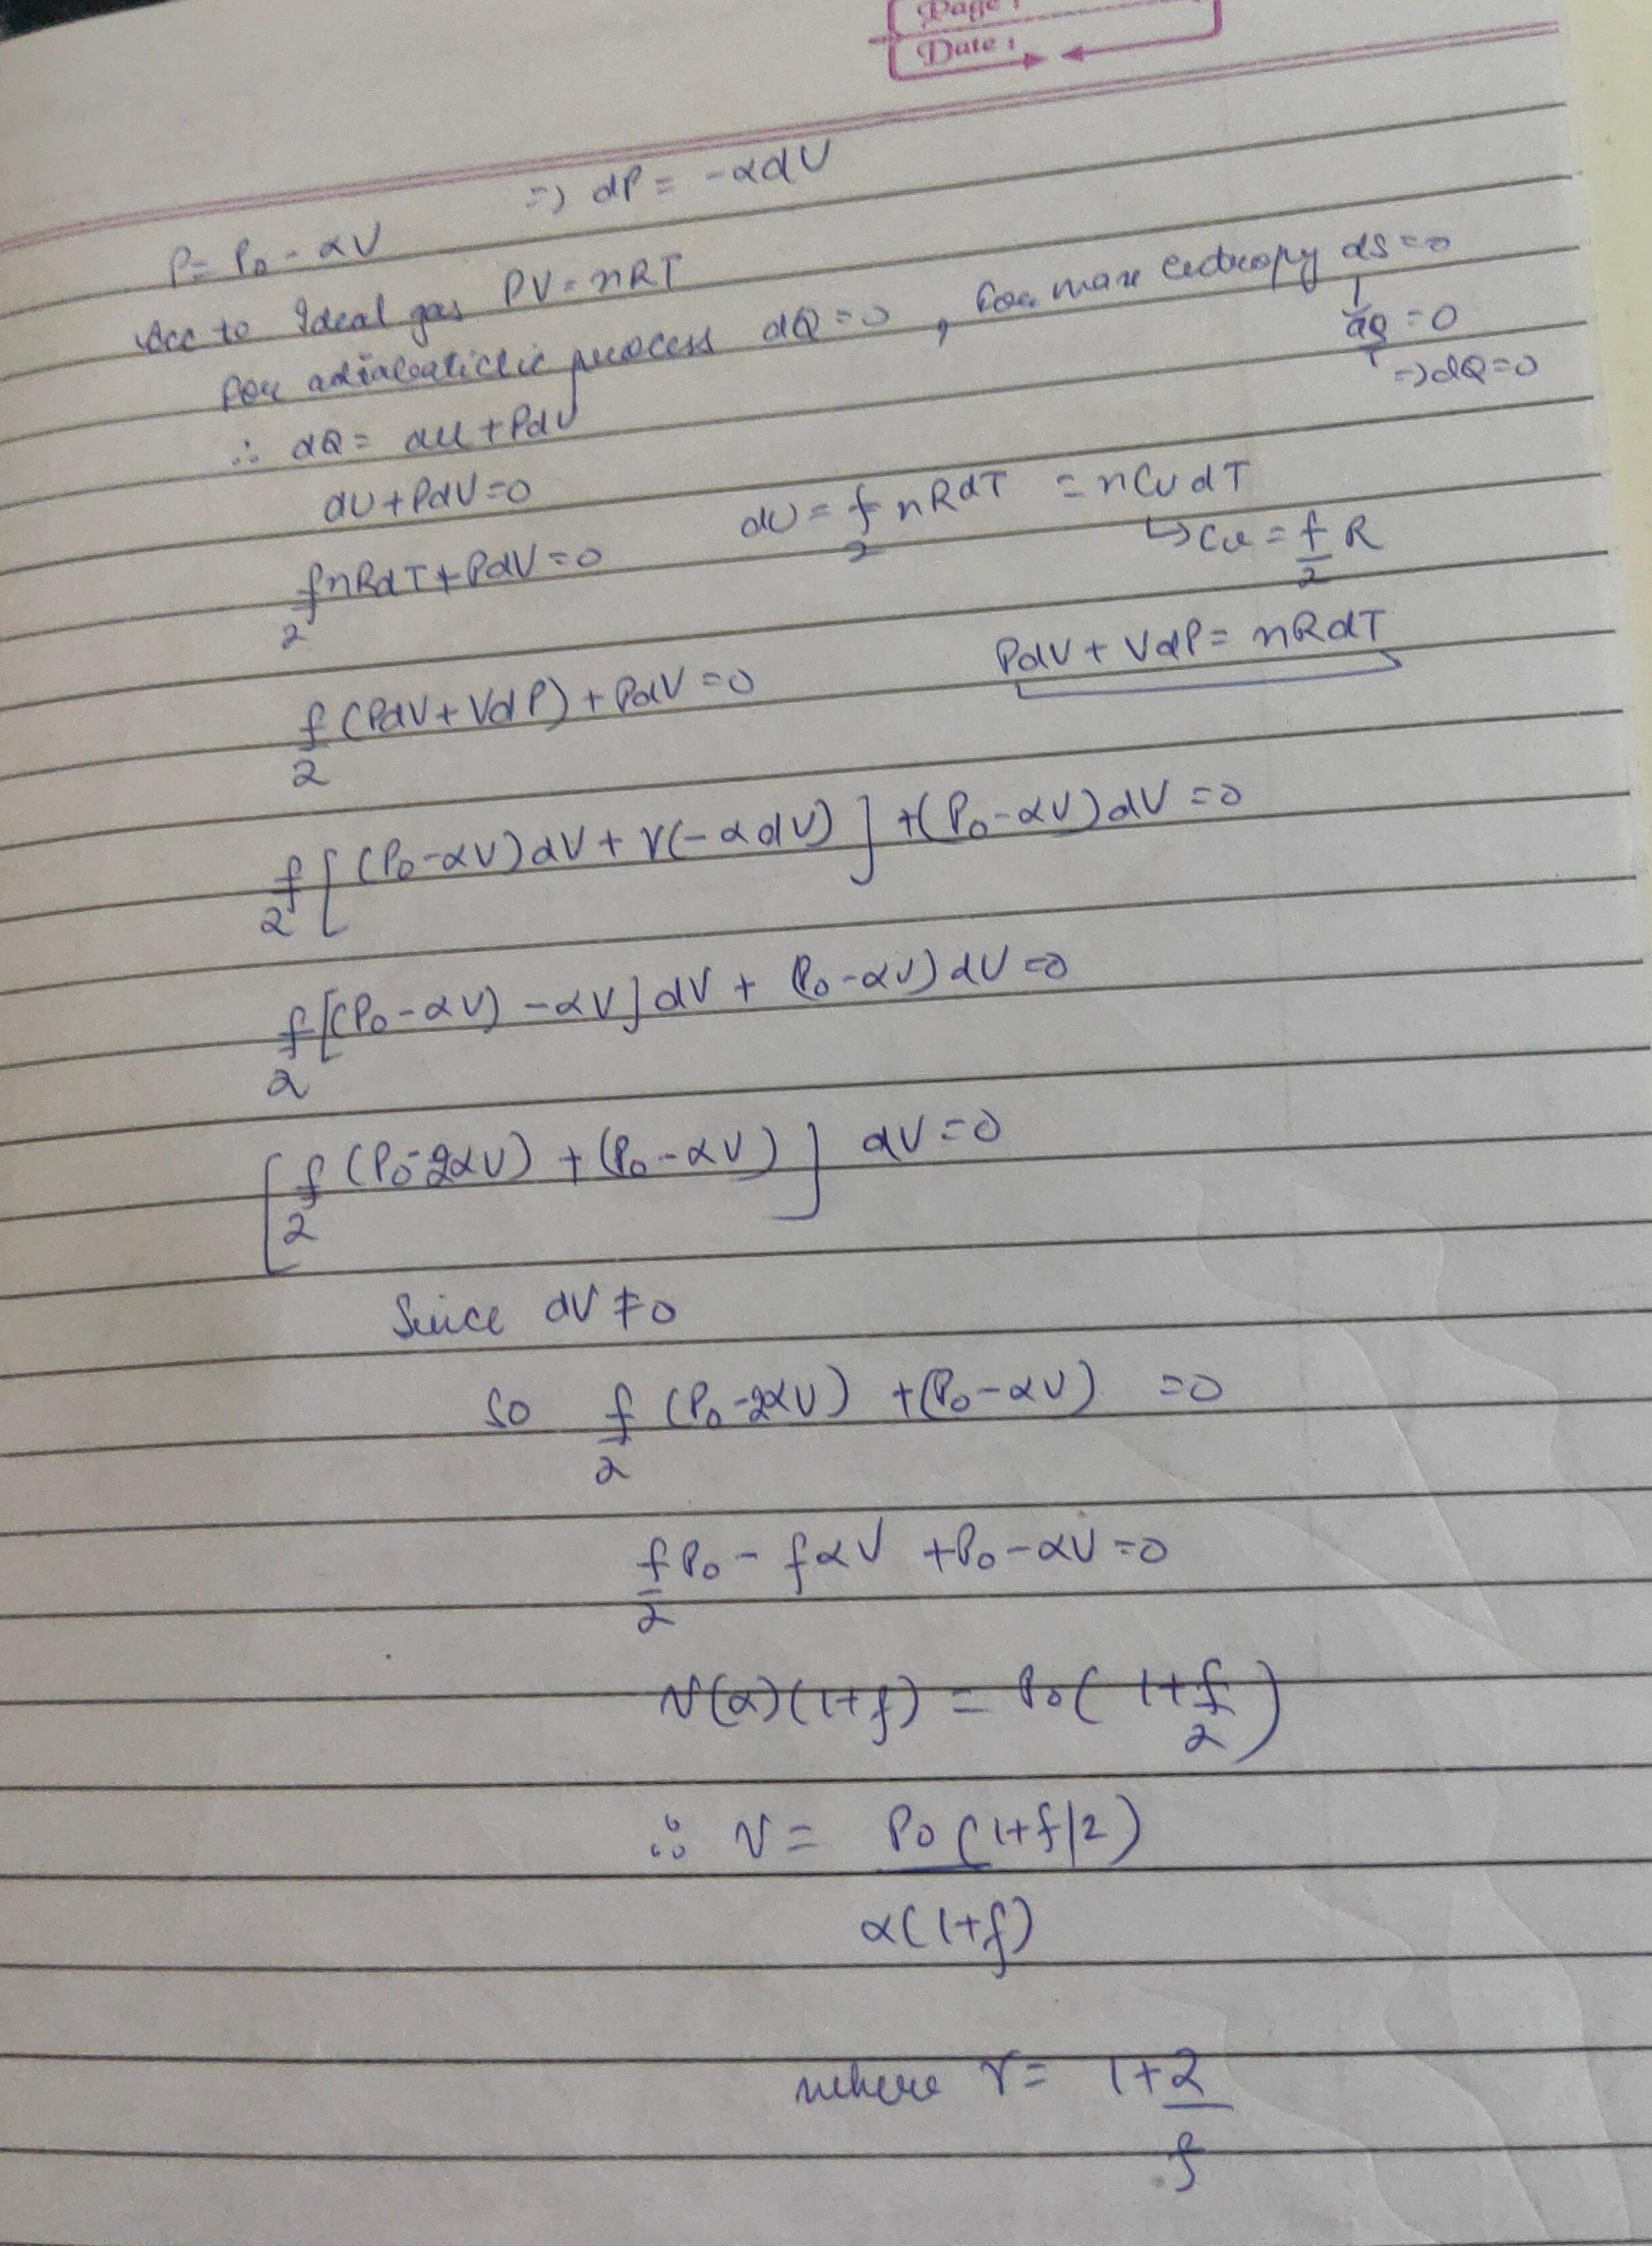 Page :
Date :
P = P₀ - αV ⇒ dP = -αdV
Acc to Ideal gas PV = nRT
for adiabatic process dQ = 0 , For max entropy dS = 0
dQ/T = 0
⇒ dQ = 0
∴ dQ = dU + PdV
dU + PdV = 0
dU = f/2 nRdT = nCvdT
↳ Cv = f/2 R
f/2 nRdT + PdV = 0
PdV + VdP = nRdT
f/2 (PdV + VdP) + PdV = 0
f/2 [(P₀ - αV)dV + V(-αdV)] + (P₀ - αV)dV = 0
f/2 [(P₀ - αV) - αV]dV + (P₀ - αV)dV = 0
[f/2 (P₀ - 2αV) + (P₀ - αV)] dV = 0
Since dV ≠ 0
So f/2 (P₀ - 2αV) + (P₀ - αV) = 0
f/2 P₀ - fαV + P₀ - αV = 0
V(α)(1+f) = P₀(1 + f/2)
∴ V = P₀(1+f/2) / α(1+f)
where γ = 1 + 2/f